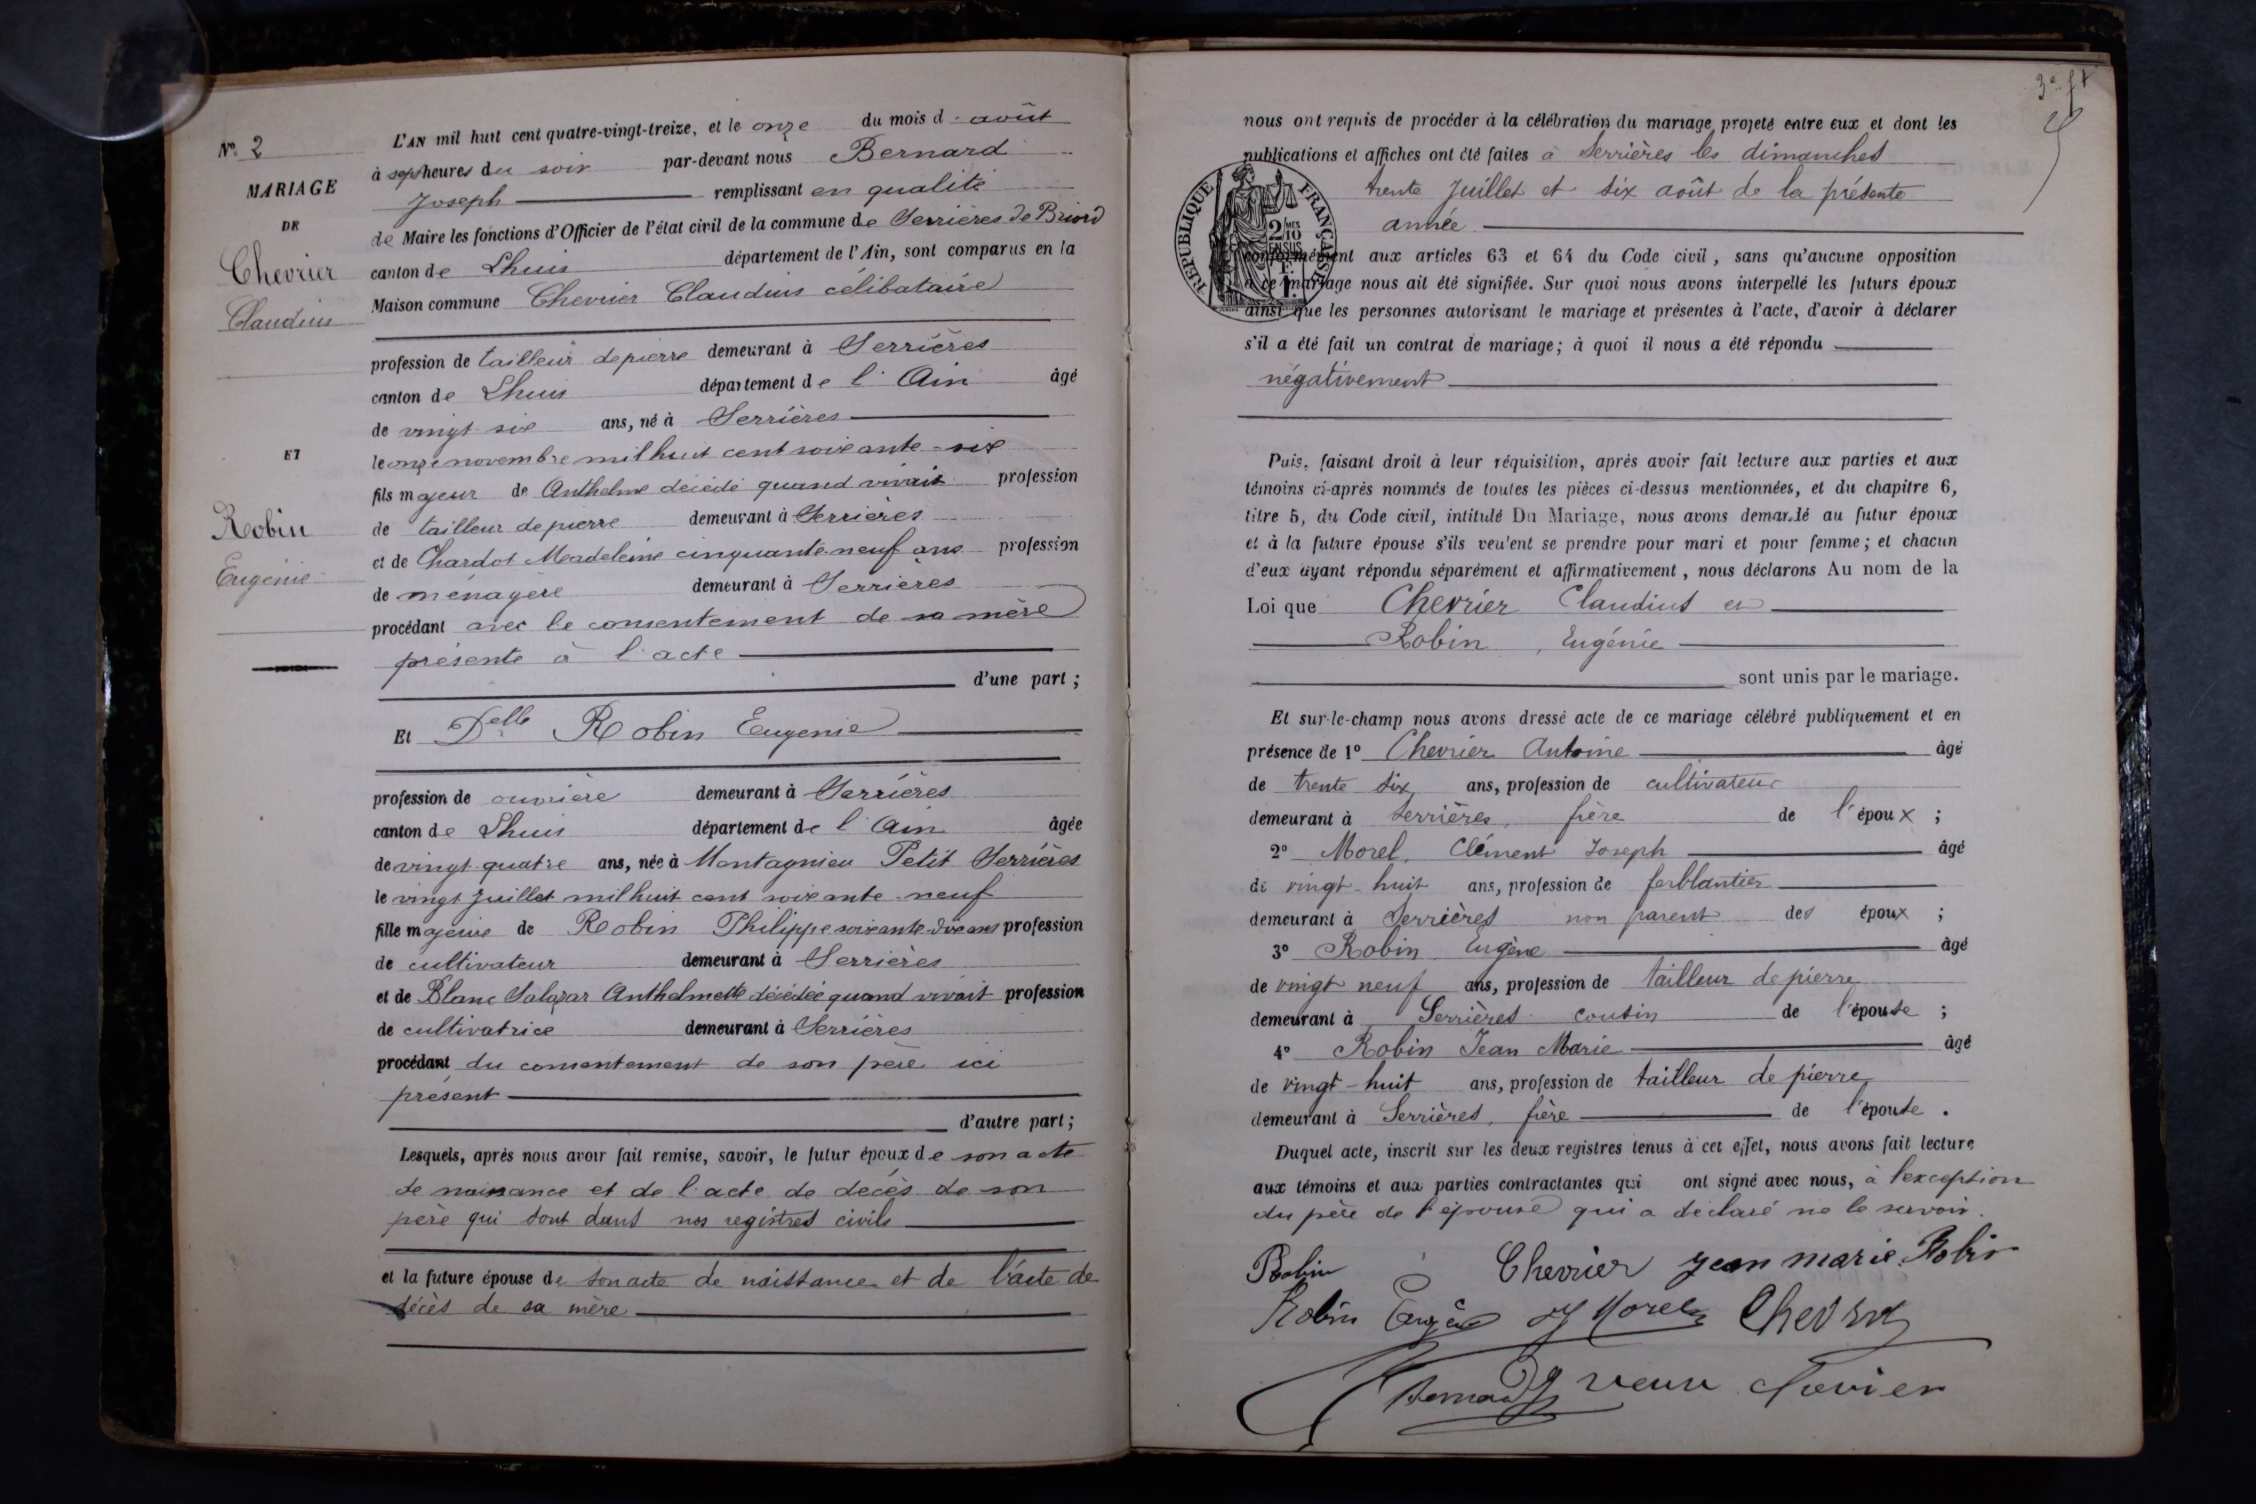 N° 2
MARIAGE
DE
Chevrier
Claudius
ET
Robin
Eugénie
L'AN mil huit cent quatre-vingt-treize, et le onze du mois d'août
à sept heures du soir par-devant nous Bernard
Joseph remplissant en qualité
de Maire les fonctions d'Officier de l'état civil de la commune de Serrières de Briord
canton de Lhuis département de l'Ain, sont comparus en la
Maison commune Chevrier Claudius célibataire
profession de tailleur de pierre demeurant à Serrières
canton de Lhuis département de l'Ain âgé
de vingt six ans, né à Serrières
le onze novembre mil huit cent soixante-six
fils majeur de Anthelme décédé quand vivait profession
de tailleur de pierre demeurant à Serrières
et de Chardot Madeleine cinquante-neuf ans profession
de ménagère demeurant à Serrières
procédant avec le consentement de sa mère
présente à l'acte
d'une part ;
Et Delle Robin Eugenie
profession de ouvrière demeurant à Serrières
canton de Lhuis département de l'Ain âgée
de vingt-quatre ans, née à Montagnieu Petit Serrières
le vingt Juillet mil huit cent soixante-neuf
fille majeure de Robin Philippe soixante-dix ans profession
de cultivateur demeurant à Serrières
et de Blanc Salazar Anthelmette décédée quand vivait profession
de cultivatrice demeurant à Serrières
procédant du consentement de son père ici
présent
d'autre part ;
Lesquels, après nous avoir fait remise, savoir, le futur époux de son acte
de naissance et de l'acte de décès de son
père qui sont dans nos registres civils
et la future épouse de son acte de naissance et de l'acte de
décès de sa mère
nous ont requis de procéder à la célébration du mariage projeté entre eux et dont les
publications et affiches ont été faites à Serrières les dimanches
trente Juillet et six août de la présente
année
RÉPUBLIQUE FRANÇAISE
conformément aux articles 63 et 64 du Code civil, sans qu'aucune opposition
à ce mariage nous ait été signifiée. Sur quoi nous avons interpellé les futurs époux
ainsi que les personnes autorisant le mariage et présentes à l'acte, d'avoir à déclarer
s'il a été fait un contrat de mariage ; à quoi il nous a été répondu
négativement
Puis, faisant droit à leur réquisition, après avoir fait lecture aux parties et aux
témoins ci-après nommés de toutes les pièces ci-dessus mentionnées, et du chapitre 6,
titre 5, du Code civil, intitulé Du Mariage, nous avons demandé au futur époux
et à la future épouse s'ils veulent se prendre pour mari et pour femme ; et chacun
d'eux ayant répondu séparément et affirmativement, nous déclarons Au nom de la
Loi que Chevrier Claudius et
Robin, Eugénie
sont unis par le mariage.
Et sur-le-champ nous avons dressé acte de ce mariage célébré publiquement et en
présence de 1° Chevrier Antoine âgé
de trente six ans, profession de cultivateur
demeurant à Serrières, frère de l'époux ;
2° Morel, Clément Joseph âgé
de vingt-huit ans, profession de ferblantier
demeurant à Serrières non parent des époux ;
3° Robin Eugène âgé
de vingt neuf ans, profession de tailleur de pierre
demeurant à Serrières cousin de l'épouse ;
4° Robin Jean Marie âgé
de vingt-huit ans, profession de tailleur de pierre
demeurant à Serrières, frère de l'épouse.
Duquel acte, inscrit sur les deux registres tenus à cet effet, nous avons fait lecture
aux témoins et aux parties contractantes qui ont signé avec nous, à l'exception
du père de l'épouse qui a déclaré ne le savoir.
Robin Chevrier jean marie Robin
Robin Eugène Morel
Bernard veuve